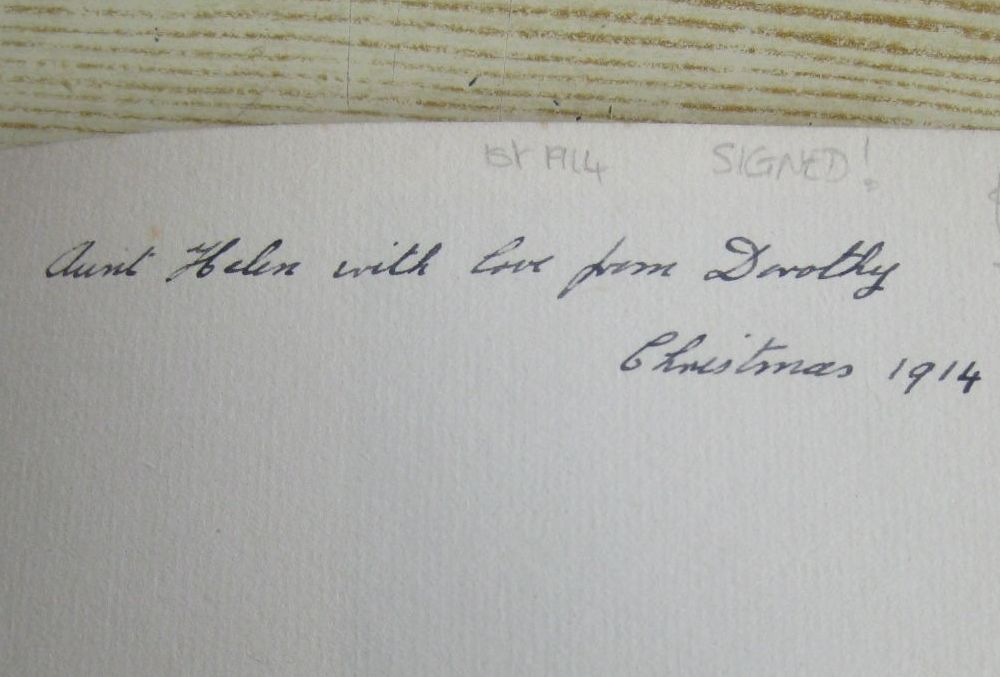 1st 1914 SIGNED!
Aunt Helen with love from Dorothy
Christmas 1914